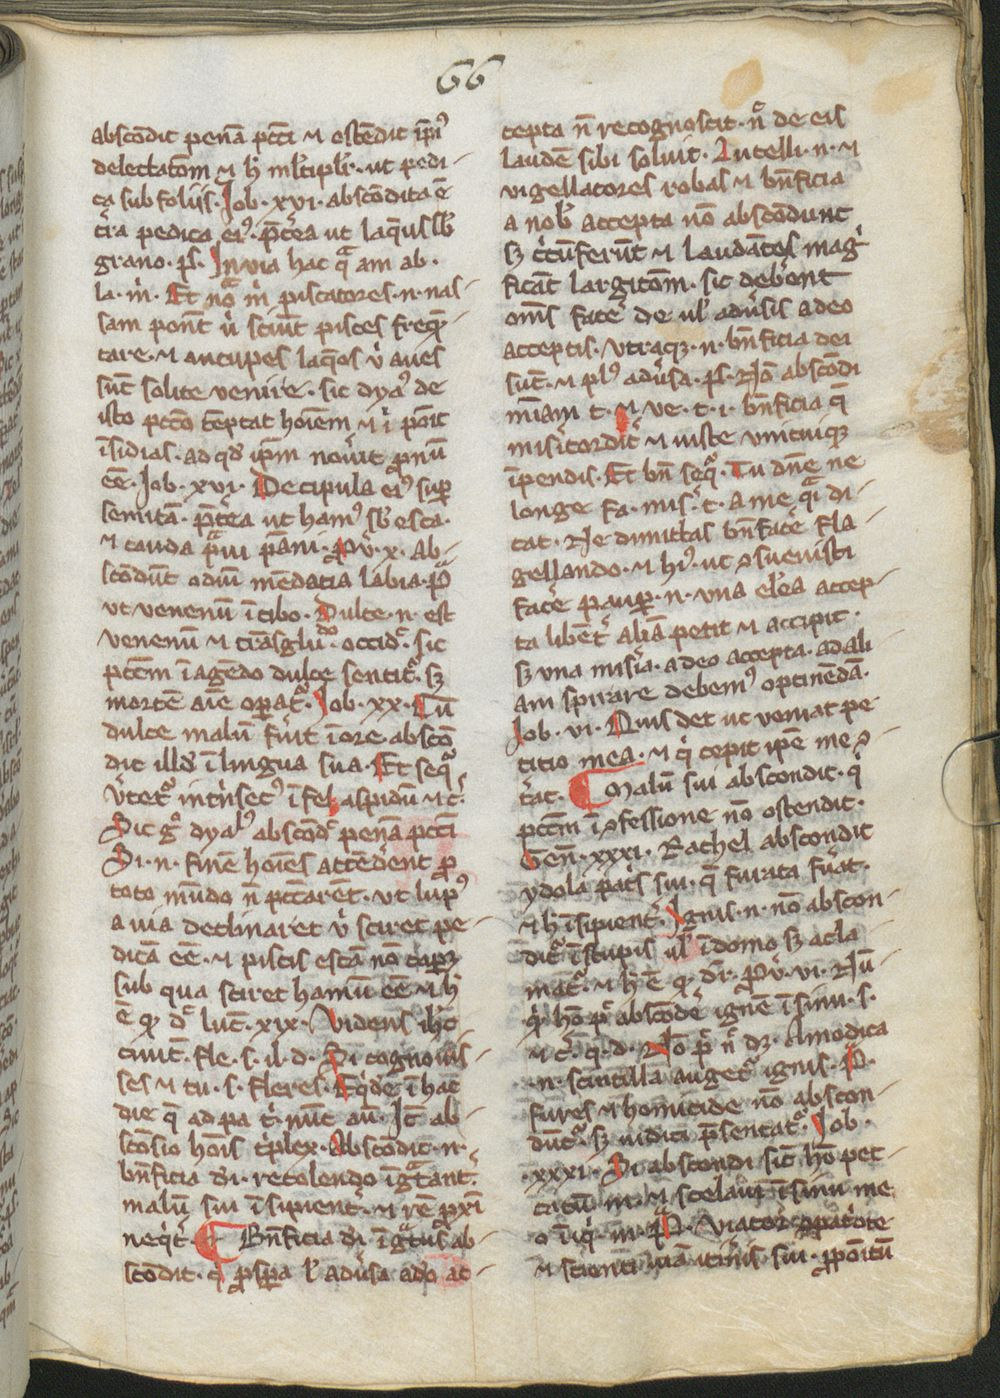 66
abscōdit penā pcc̄i ⁊ ostēdit ip̄iꝰ
delectatōm ⁊ h̄ ml̄tiplr̄ · ut pedi-
ca sub foliis · Job · xvi · abscōdita ē
t̄ra pedica eiꝰ · p̄t̄ea ut laq̄us sb̄
grano · ps̄ · In via hac qᵃ am ab ·
la · m̄ · Et nōᵃ m̄ piscatores · n · nas-
sam ponūt u̓ sciūt pisces freq̄n-
tare · ⁊ aucupes laq̄os u̓ aues
sūt solite venire · sic dyaꝰ de
isto pccō tēptat hoīem ⁊ ī ponit
īsidias · ad qd̓ ip̄m nouit pronū
ēē · Job · xvi · Decipula eiꝰ suꝑ
semitā · p̄t̄ea ut hamꝰ sb̓ esca ·
⁊ cauda · Pv̓ · x · Ab-
scōdūt odiū mēdacia labia ·
ut venenū ī cibo · Dulce · n · est
venenū ⁊ occid̓ · sic
pcc̄m ī agēdo dulce sentit᷑ · sꝫ
mortē aīe oꝑat᷑ · Job · xx · Cū
dulce malū fūit ī ore · abscō
dit illd̓ ī lingua sua · Et seqᷓ
v̓tet᷑ int̓nsecꝰ ī fel aspidū ⁊ c̓ ·
Sic gͦ dyalꝰ abscōdᷓ penā pcc̄i
Si · n · finē hoīes attēderent ꝓ
toto mūdo n̄ pcc̄arēt · ut lupꝰ
a uia declinaret u̓ sciret pe-
dicā ēē · ⁊ piscis escā nō caꝑꝫ
sub qua sciret hamū ēē ⁊ h̄
ē qͦ dᷓ luc̄ · xix · Videns ih̄c
ciuit̄ · fle · s · il · d · Si cognouis-
ses ⁊ tu · s · fleres · Eqͥdē ī hac
die q̄ ad pa t̓ · nūc aū · Jt̄ ab-
scōsio hoīs t̓plex · Abscōdit · n ·
bn̄ficia di̓ · recolendo īgᵃtant᷑ ·
malū sui īsipient᷑ · ⁊ rē pxī
neqͥt᷑ · ¶ Bn̄ficia di̓ īgᵃtus ab-
scōdit · qͥ prosꝑa l̓ adūsa a deo ac-
cepta n̄ recognoscit · n̄ᷓ de eis
laudē sibi soluit · Iutelli · n · ⁊
vigellatores robas ⁊ bn̄ficia
a nob̓ accepta nō abscōdunt
sꝫ c̓cūferūt ⁊ laudātes mag̓
ficāt largitōm · sic debent
om̄s face᷑ de ul̓ adūsis a deo
acceptis · vtraqꝫ · n · bn̄ficia dei
sūt · ⁊ plꝰ adūsa · ps̄ · Nō abscōdi
mīam t · ⁊ ve · t · i · bn̄ficia q̄
misic̓ordit᷑ ⁊ iuste vnicuiqꝫ
īpendis · Et bn̄ seqᷓ · Tu dn̄e ne
longe fa · mis · t · a me qᵃi di-
cat · Ne dimittas bn̄face᷑ fla-
gellando · ⁊ hꝰ · ut ꝯsueuisti
face᷑ pauꝑ · n · vna el̓ea accep-
ta libent᷑ aliā petit ⁊ accipit ·
sꝫ vna mis̓ia · a deo accepta · ad ali
am spirare debemꝰ optinēdā ·
Job · vi · Quis det ut veniat pe
titio mea · ⁊ qͥ cepit ip̄e me ꝯ
t̓at · ¶ Malū sui abscondit · qͥ
pcc̄m ī ꝯfessione nō ostendit ·
Gen̄ · xxxi · Rachel abscondit
ydola pat̓s sui · q̄ furata fūat ·
⁊ h̄ īsipient᷑ · Ignis · n · nō abscon-
dit᷑ ī stupis ul̓ ī domo sꝫ acla
mat᷑ · ⁊ h̄ ē qͦ dr̄ · ꝓv̓ · vi · Nū-
qͥ hō pͭ abscōde᷑ ignē ī sinu · s ·
⁊ c̓ · q · d · Nō pͭ n̄ dꝫ · A modica
· n · scintilla auget᷑ ignis · P ·
fures ⁊ homicide nō abscon-
dūt᷑ · sꝫ iudici p̄sentat᷑ · Job ·
xxxi · Si abscondi sic̄ hō pec-
catū m · ⁊ scelaui ī sinu me
o īiqͥ · m · P · Viator
⁊ scienti viā itin̓is sui · ꝓpōitū